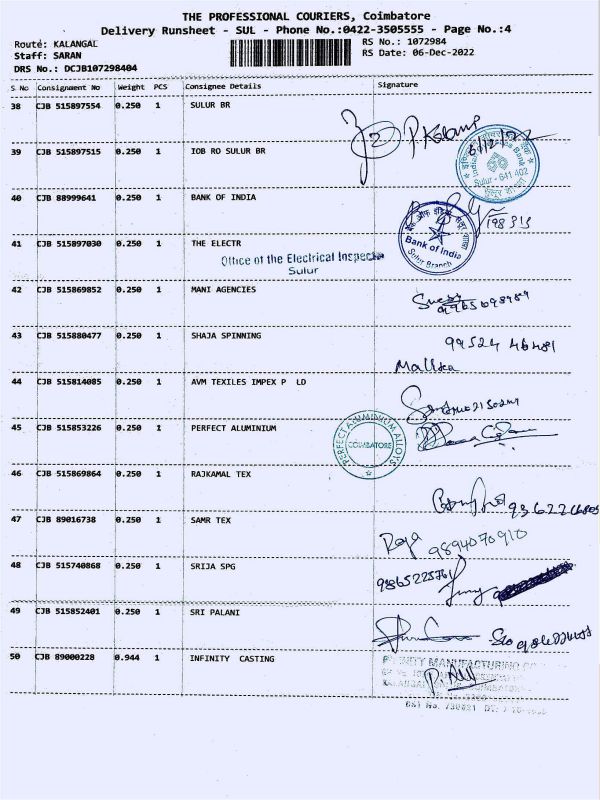 THE PROFESSIONAL COURIERS, Coimbatore
Delivery Runsheet - SUL - Phone No.:0422-3505555 - Page No.:4
Route: KALANGAL
Staff: SARAN
DRS No.: DCJB107298404
RS No.: 1072984
RS Date: 06-Dec-2022
S No Consignment No Weight PCS Consignee Details Signature
38 CJB 515897554 0.250 1 SULUR BR
39 CJB 515897515 0.250 1 IOB RO SULUR BR
Sulur - 641 402
40 CJB 88999641 0.250 1 BANK OF INDIA
Bank of India
Sulur Branch
41 CJB 515897030 0.250 1 THE ELECTR
Office of the Electrical Inspector
Sulur
42 CJB 515869852 0.250 1 MANI AGENCIES
43 CJB 515880477 0.250 1 SHAJA SPINNING
99524 46481
Mallika
44 CJB 515814085 0.250 1 AVM TEXILES IMPEX P LD
45 CJB 515853226 0.250 1 PERFECT ALUMINIUM
PERFECT ALUMINIUM ALLOYS
COIMBATORE
46 CJB 515869864 0.250 1 RAJKAMAL TEX
47 CJB 89016738 0.250 1 SAMR TEX
Raja 9894070910
48 CJB 515740868 0.250 1 SRIJA SPG
49 CJB 515852401 0.250 1 SRI PALANI
50 CJB 89000228 0.944 1 INFINITY CASTING